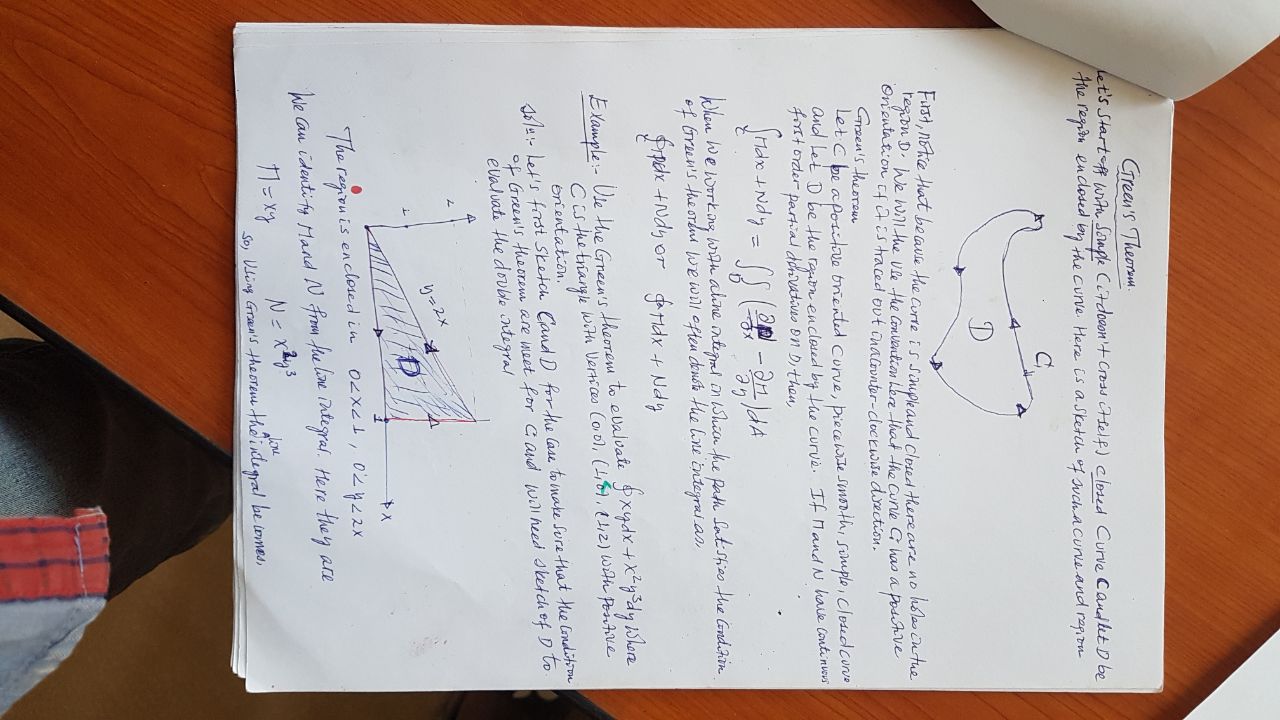 Green's Theorem.
Let's start off with simple (it doesn't cross itself) closed Curve C and let D be
the region enclosed by the curve. Here is a sketch of such a curve and region
C
D
First, note that because the curve is simple and closed there are no holes in the
region D. We will the Use the convention here that the curve C has a positive
orientation if it is traced out in a counter-clockwise direction.
Green's theorem
Let C be a positive oriented Curve, piecewise smooth, simple, closed curve
and let D be the region enclosed by the curve. If M and N have continuous
first order partial derivatives on D, then,
∫_C Mdx + Ndy = ∬_D (∂N/∂x - ∂M/∂y) dA
When we working with a line integral in which the path satisfies the condition
of Green's theorem we will often denote the line integral as,
∮_C Mdx + Ndy or ∮Mdx + Ndy
Example:- Use the Green's theorem to evaluate ∮xydx + x²y³dy where
C is the triangle with vertices (0,0), (1,0), (1,2) with positive
orientation.
Soln:- Let's first sketch C and D for the case to make sure that the condition
of Green's theorem are meet for C and will need sketch of D to
evaluate the double integral
2
y=2x
1
D
1
x
The region is enclosed in 0<x<1, 0<y<2x
We can identity M and N from the line integral. Here they are
M = xy N = x²y³
So, Using Green's theorem the line integral becomes,